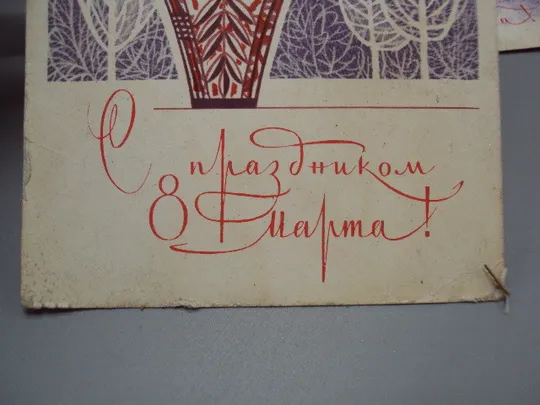 С праздником
8 Марта!
та!